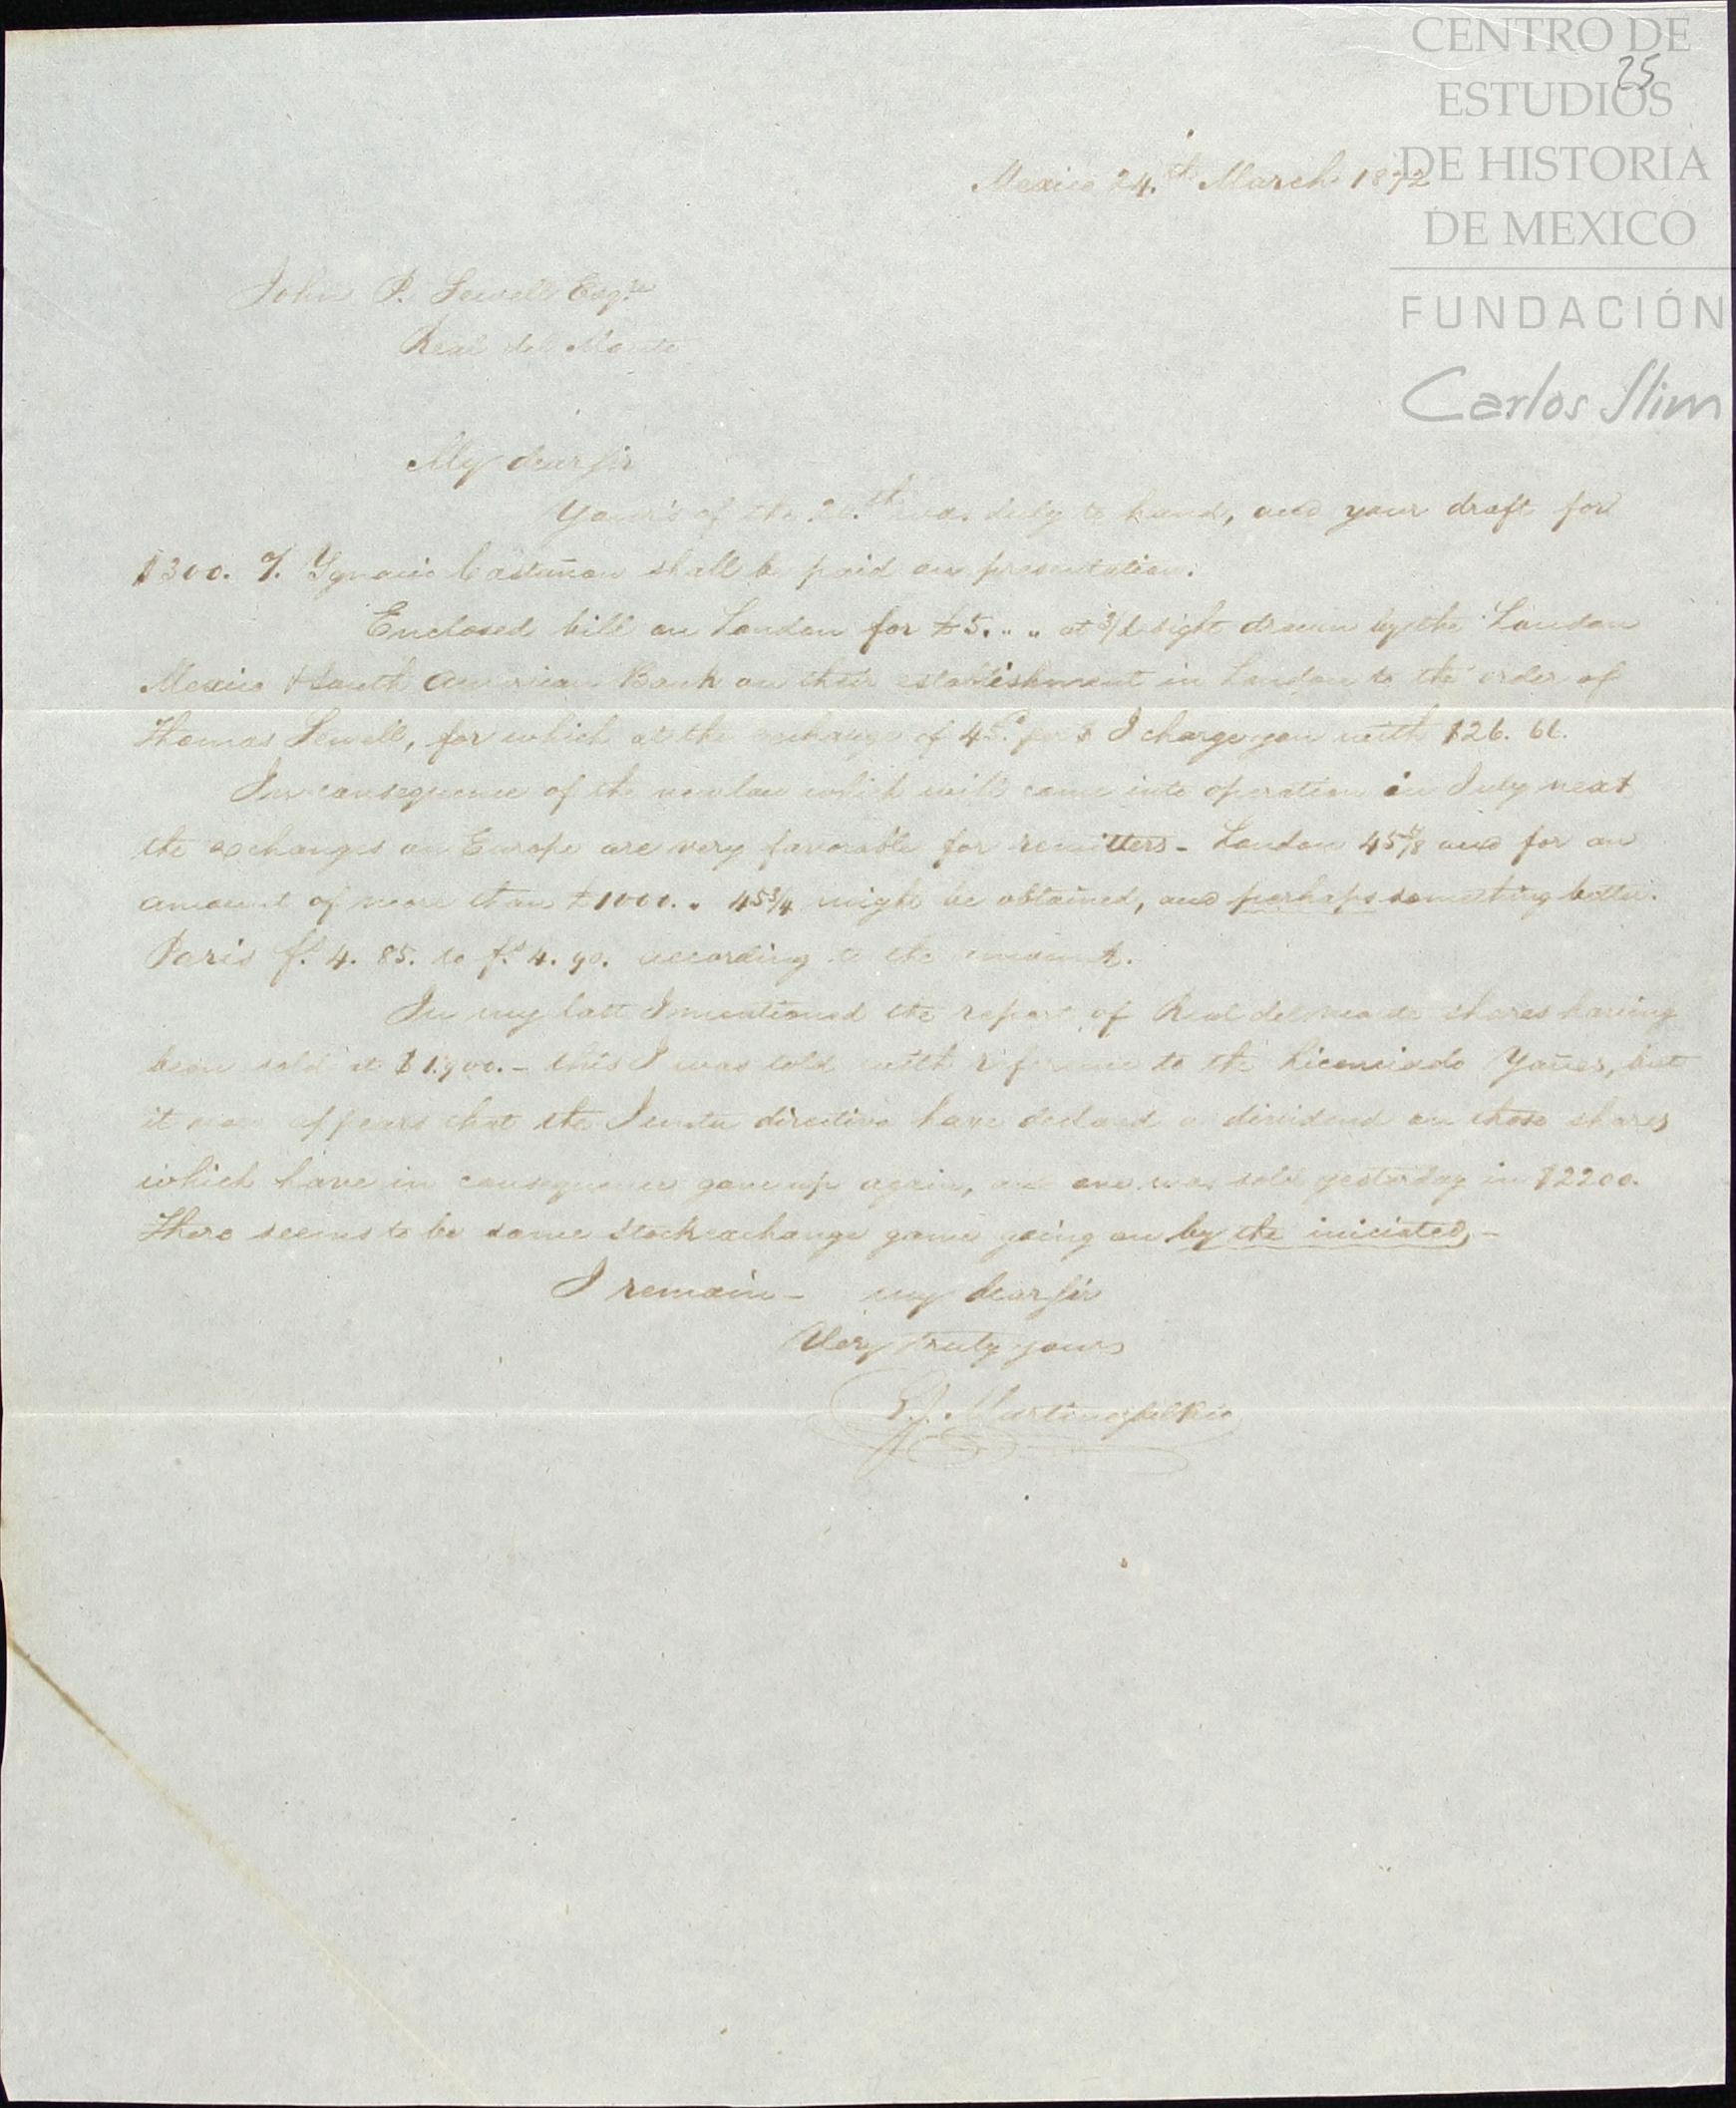 CENTRO DE
ESTUDIOS
DE HISTORIA
DE MEXICO
FUNDACIÓN
Carlos Slim
25
Mexico 24.th March 1872
John P. Sewell Esqre
Real del Monte
My dear Sir
Your's of the was duly to hand, and your draft for
$300. Ygnacio Castañon shall be paid on presentation.
Enclosed bill on London for £5. " " at sight drawn by the London
Mexico & South American Bank on their establishment in London to the order of
Thomas Sewell, for which at the exchange of 45.d per $ I charge you with $26. 66.
In consequence of the new law which will come into operation in July next
the exchanges on Europe are very favorable for remitters - London 45 5/8 and for an
amount of more than £1000. " 45 3/4 might be obtained, and perhaps something better.
Paris fs. 4. 85. to fs. 4. 90. according to the amount.
In my last I mentioned the report of Real del monte shares having
been sold at $1.900. - this I was told with reference to the Licenciado Yañes, but
it now appears that the Junta directiva have declared a dividend on those shares
which have in consequence gone up again, and one was sold yesterday in $2200.
There seems to be some Stock exchange game going on by the iniciated, -
I remain - my dear Sir
Very truly yours
Martinez del Rio